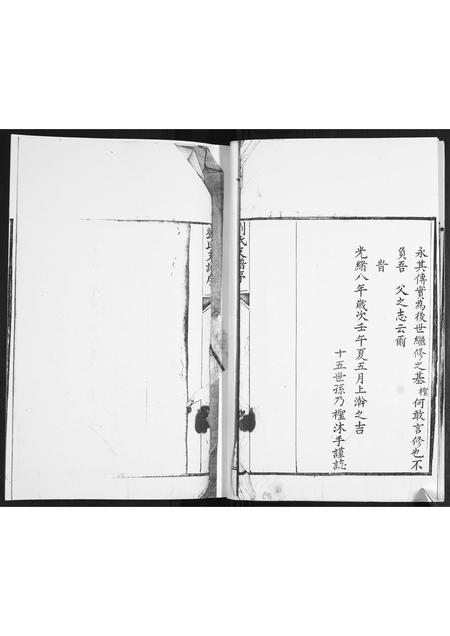 永其傳實為後世繼修之基樫何敢言修也不
負吾 父之志云爾
旹
光緒八年歲次壬午夏五月上澣之吉
十五世孫乃樫沐手謹誌
劉氏支譜序
劉氏支譜序